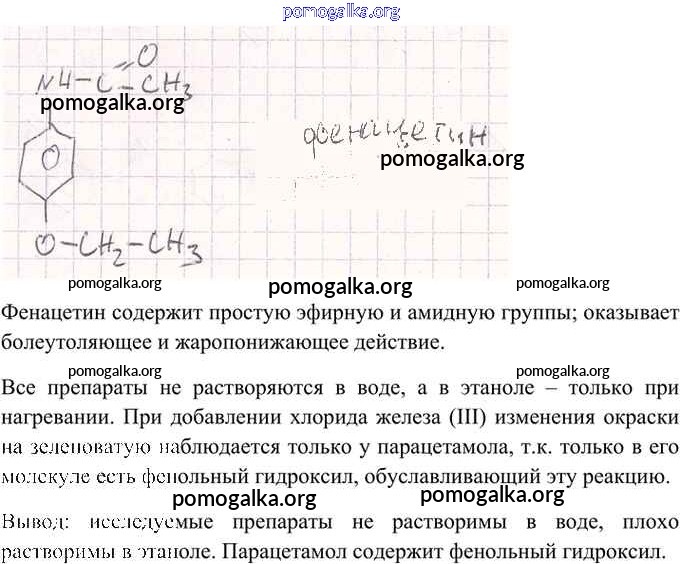 pomogalka.org
O
NH-C-CH3
pomogalka.org
фенацетин
pomogalka.org
O-CH2-CH3
pomogalka.org pomogalka.org pomogalka.org
Фенацетин содержит простую эфирную и амидную группы; оказывает
болеутоляющее и жаропонижающее действие.
pomogalka.org pomogalka.org
Все препараты не растворяются в воде, а в этаноле – только при
нагревании. При добавлении хлорида железа (III) изменения окраски
на зеленоватую наблюдается только у парацетамола, т.к. только в его
молекуле есть фенольный гидроксил, обуславливающий эту реакцию.
pomogalka.org pomogalka.org
Вывод: исследуемые препараты не растворимы в воде, плохо
растворимы в этаноле. Парацетамол содержит фенольный гидроксил.
pomogalka.org pomogalka.org